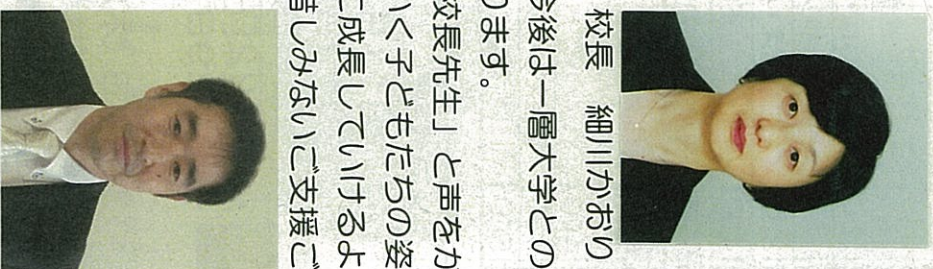 校長　細川かおり
今後は一層大学との
ります。
校長先生」と声をか
いく子どもたちの姿
に成長していけるよ
惜しみないご支援ご